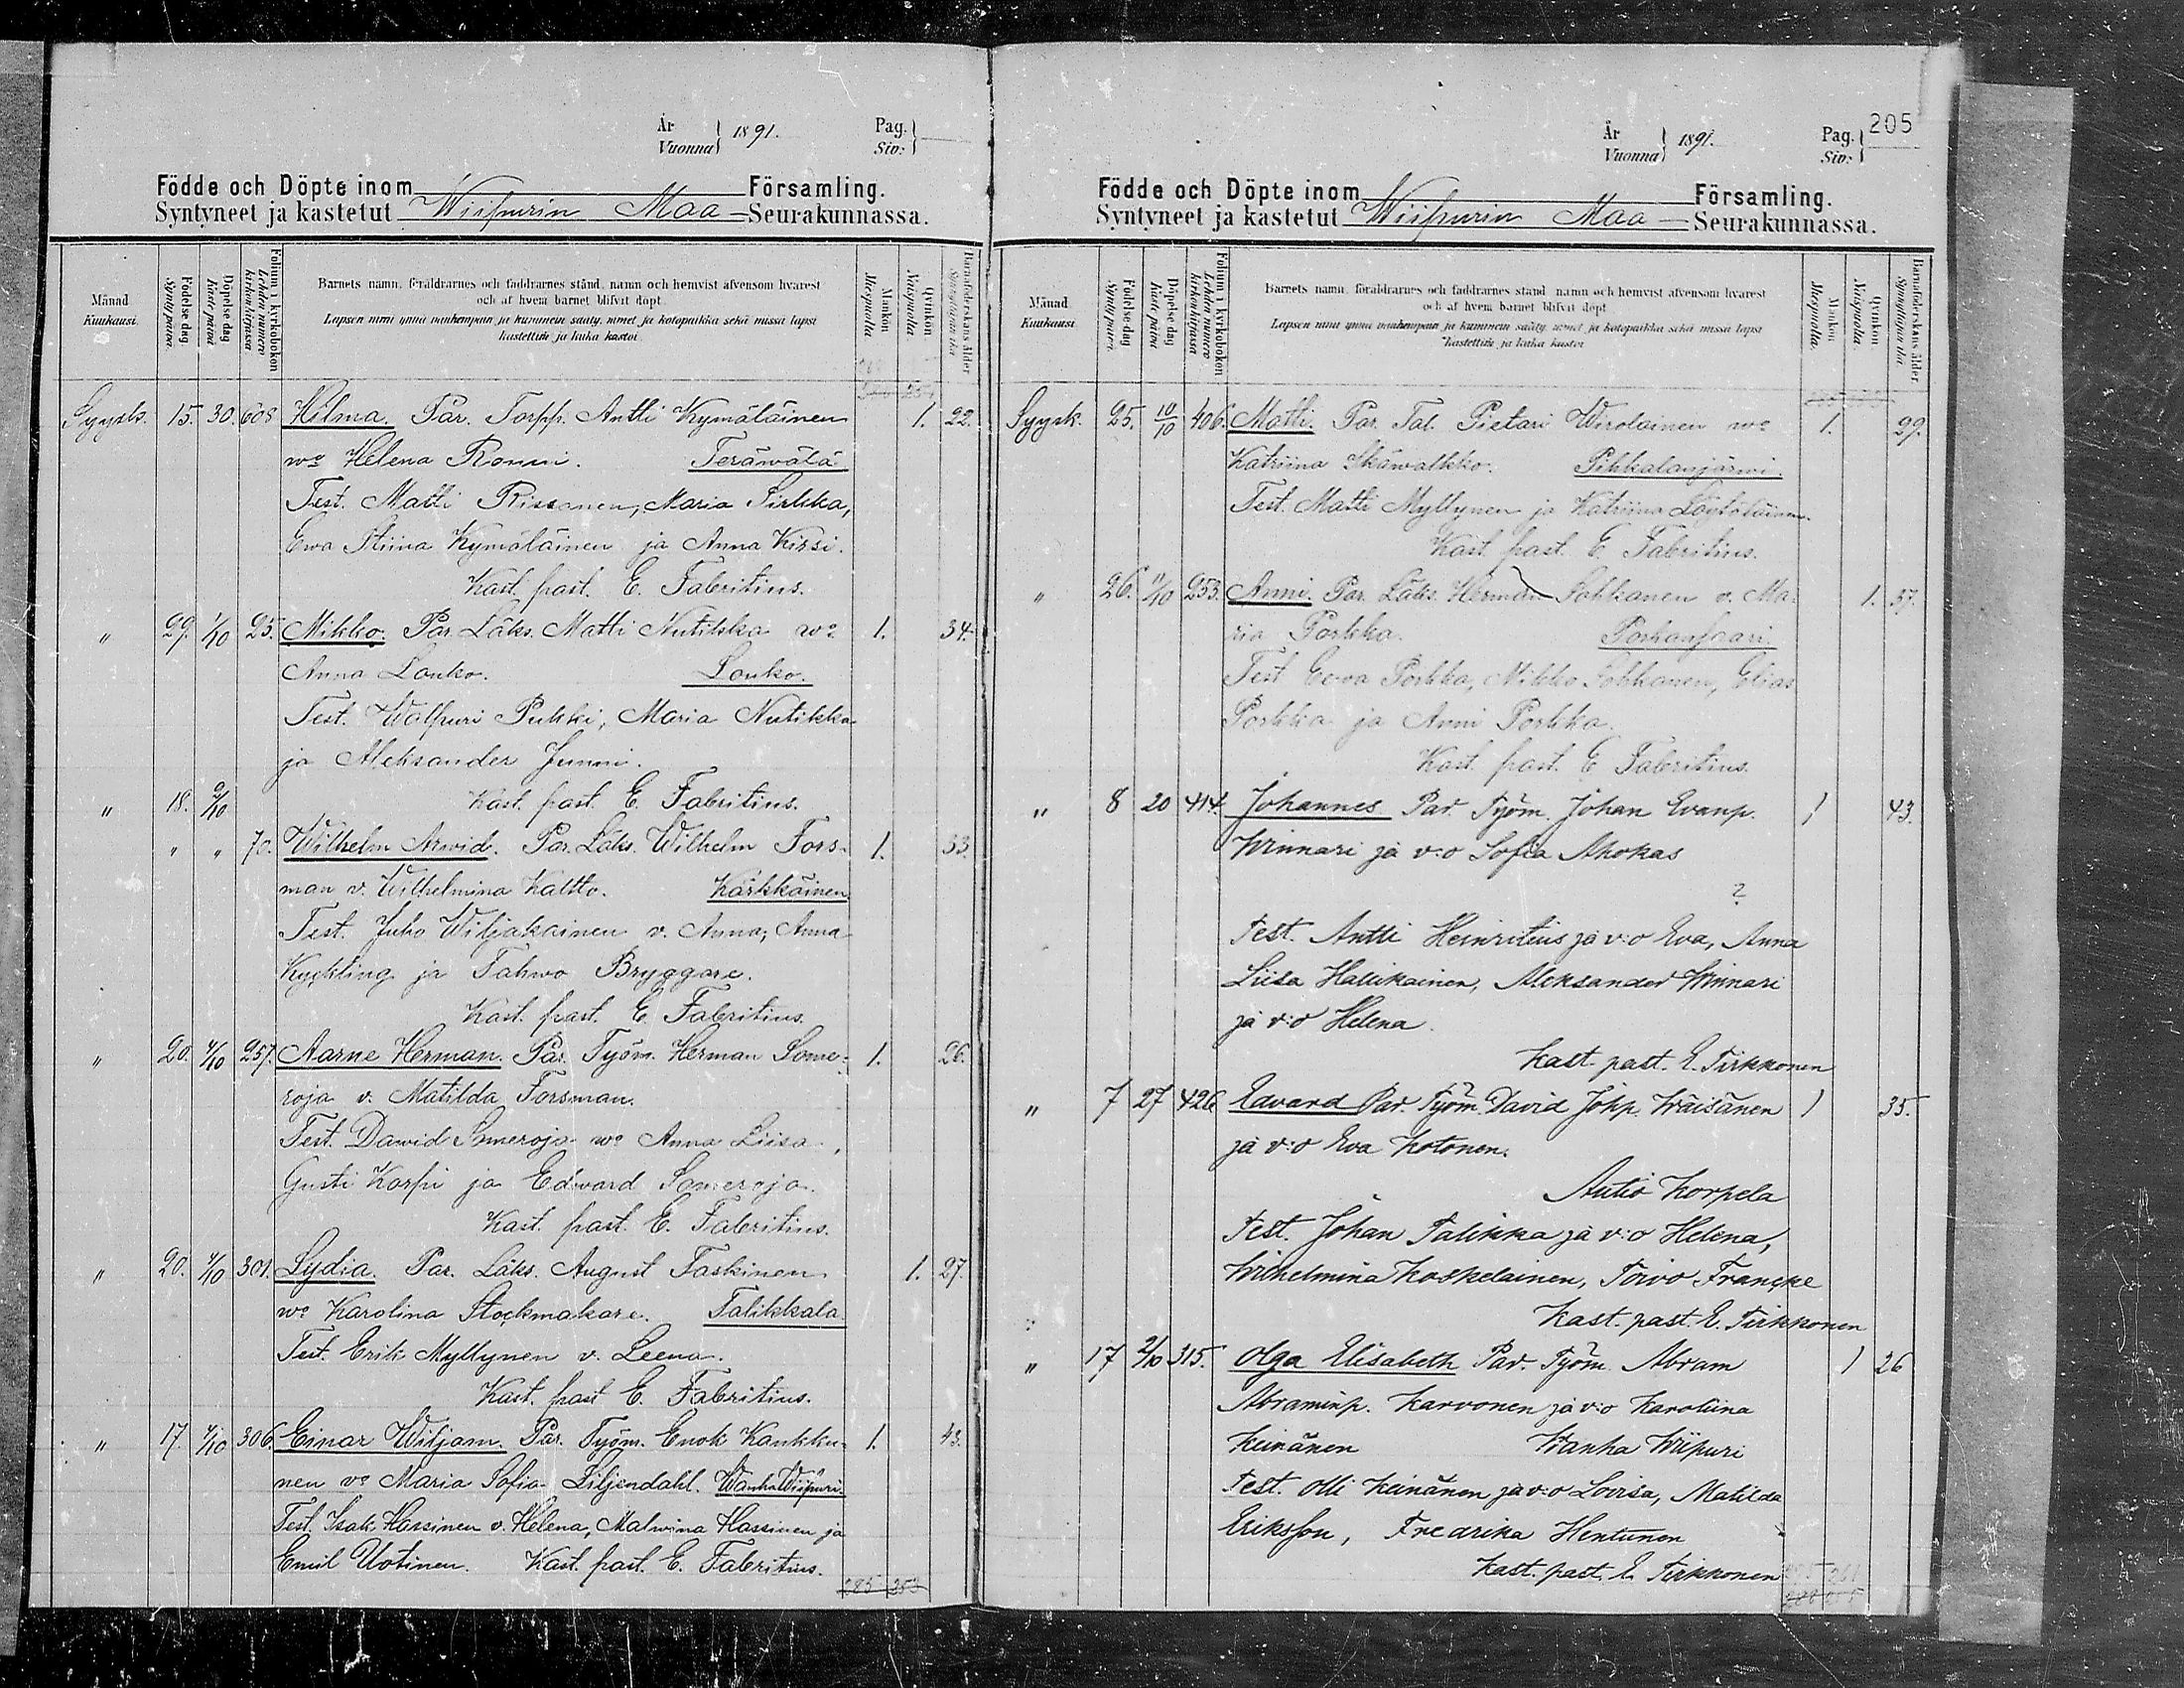 År
Vuonna 1891.
Pag.
Siv:
Födde och Döpte inom Församling.
Syntyneet ja kastetut Wiipurin Maa Seurakunnassa.
Månad
Kuukausi.
Födelse dag
Synty päivä.
Döpelse dag
Kaste päivä
Folium i kyrkoboken
Lehden numero
kirkonkirjassa
Barnets namn, föräldrarnes och faddrarnes stånd, namn och hemvist äfvensom hvarest
och af hvem barnet blifvit döpt.
Lapsen nimi ynnä vanhempain ja kummein sääty, nimet ja kotopaikka sekä missä lapsi
kastettiin ja kuka kastoi
Mankön
Miespuolta
Qvinkön
Naispuolta.
Barnaföderskans ålder
Synnyttäjän ikä
Syysk. 15. 30. 608 Hilma. Par. Torpp. Antti Kymäläinen 1. 22.
wo Helena Ronni. Teräwälä
Test. Matti Rissanen, Maria Sirkka,
Ewa Stiina Kymäläinen ja Anna Kirsi.
Kast. past. E. Fabritius.
" 29. 1/10 25. Mikko. Par. Läks. Matti Nutikka wo 1. 34.
Anna Louko. Louko.
Test. Walpuri Pukki, Maria Nutikka
ja Aleksander Junni.
" 18. 2/10 Kast. past. E. Fabritius.
" " 70. Wilhelm Arwid. Par. Läks. Wilhelm Fors- 1. 33.
man v. Wilhelmina Kaltto. Kärkkäinen
Test. Juho Wiljakainen v. Anna, Anna
Kyckling ja Tahwo Bryggare.
Kast. past. E. Fabritius.
" 20. 4/10 257. Aarne Herman. Par. Työm. Herman Some- 1. 26.
roja v. Matilda Forsman.
Test. Dawid Someroja wo Anna Liisa,
Gusti Korpi ja Edward Someroja.
Kast. past. E. Fabritius.
" 20. 4/10 301. Lydia. Par. Läks. August Taskinen 1. 27.
wo Karolina Stockmakare. Talikkala
Test. Erik Myllynen v. Leena.
Kast. past E. Fabritius.
" 17. 4/10 306. Einar Wiljam. Par. Työm. Enok Kaukku- 1. 43.
nen vo Maria Sofia Liljendahl. Wanha Wiipuri.
Test. Isak Hassinen v. Helena, Malwina Hassinen ja
Emil Uotinen. Kast. past. E. Fabritius.
285 253
År
Vuonna 1891.
Pag.
Siv: 205
Födde och Döpte inom Församling.
Syntyneet ja kastetut Wiipurin Maa Seurakunnassa.
Månad
Kuukausi
Födelse dag
Synty päivä.
Döpelse dag
Kaste päivä
Folium i kyrkoboken
Lehden numero
kirkonkirjassa
Barnets namn, föräldrarnes och faddrarnes stånd, namn och hemvist äfvensom hvarest
och af hvem barnet blifvit döpt
Lapsen nimi ynnä vanhempain ja kummein sääty, nimet ja kotopaikka sekä missä lapsi
kastettiin ja kuka kastoi
Mankön
Miespuolta.
Qvinkön.
Naispuolta.
Barnaföderskans ålder.
Synnyttäjän ikä
Syysk. 25. 10/10 406. Matti. Par. Tal. Pietari Wirolainen wo 1. 29.
Katriina Skäwalkko. Pihkalanjärwi.
Test. Matti Myllynen ja Katriina Löytöläinen.
Kast. past. E. Fabritius.
" 26. 11/10 253. Anni. Par. Läks. Herman Sohkanen v. Ma- 1. 37.
ria Porkka. Porkansaari.
Test Eewa Porkka, Mikko Sohkanen, Elias
Porkka ja Anni Porkka.
Kast. past. E. Fabritius.
" 8 20 414. Johannes Par. Työm. Johan Evanp. 1 43.
Winnari ja v:o Sofia Ahokas
?
Test. Antti Heinritius ja v:o Eva, Anna
Liisa Hallikainen, Aleksander Winnari
ja v:o Helena.
Kast. past. E. Tirkkonen
" 7 27 426 Edvard Par. Työm. David Johp. Wäisänen 1 35.
ja v:o Eva Kotonen.
Autio Korpela
Test. Johan Talikka ja v:o Helena,
Wilhelmina Koskelainen, Toivo Francke
Kast. past. E. Tirkkonen
" 17 2/10 315. Olga Elisabeth Par. Työm. Abram 1 26
Abraminp. Karvonen ja v:o Karoliina
Keinänen Wanha Wiipuri
Test. Olli Keinänen ja v:o Lovisa, Matilda
Eriksson, Fredrika Hentunen
Kast. past. E. Tirkkonen